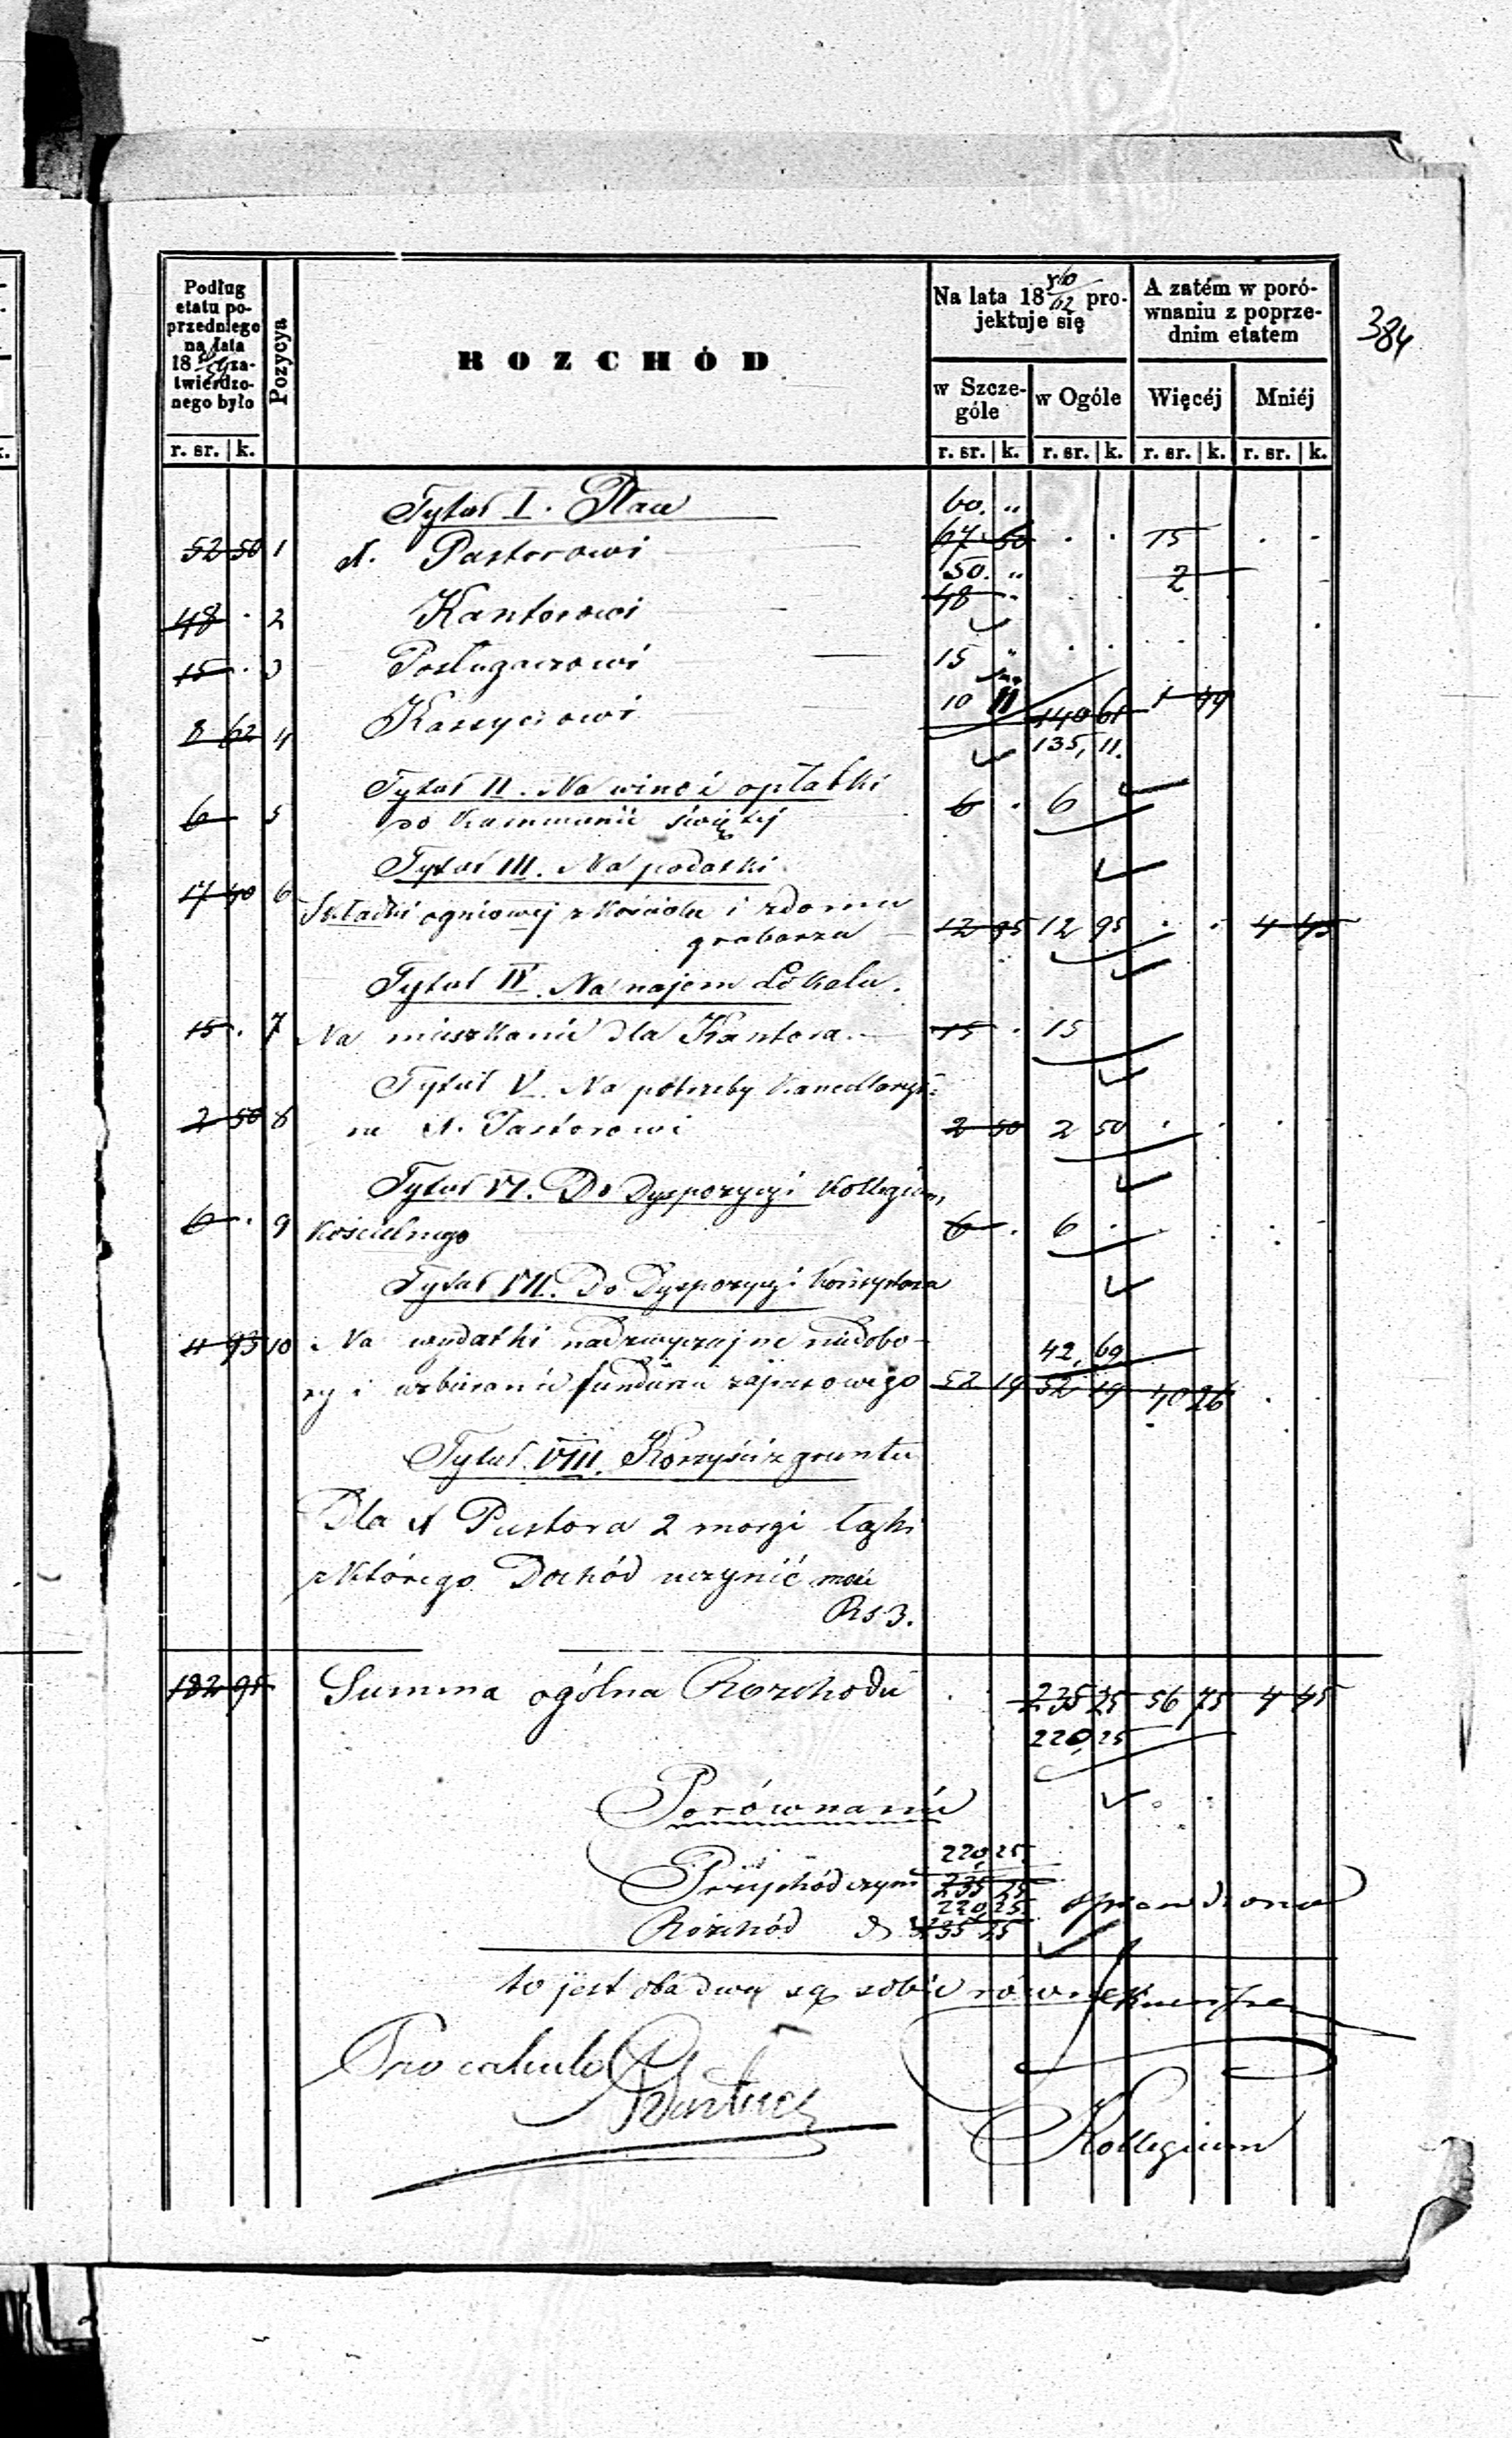 384
Podług
etatu po-
przedniego
na lata
18 za-
twierdzo-
nego było
Pozycya
ROZCHÓD
Na lata 18 60/62 pro-
jektuje się
A zatém w poró-
wnaniu z poprze-
dnim etatem
w Szcze-
góle
w Ogóle
Więcéj
Mniéj
r. sr. k. r. sr. k. r. sr. k. r. sr. k. r. sr. k.
Tytuł I. Płace
60. "
52 50 1 A. Pastorowi 67 50 . . 15 . .
50. " 2
48 . 2 Kantorowi 48 "
15 . 3 Posługaczowi 15 "
8 62 4 Kassyerowi 10 11 140 61 1 49
135, 11.
Tytuł II. Na wino i opłatki
6 5 do Kommunii świętej 6 . 6
Tytuł III. Na podatki
17 40 6 Składki ogniowej z kościoła i z domu
grabarza 12 95 12 95 . . 4 45
Tytuł IV. Na najem Lokalu.
15 . 7 Na mieszkanie dla Kantora. 15 . 15
Tytuł V. Na potrzeby Kancellaryj-
2 50 8 ne A. Pastorowi 2 50 2 50 . . .
Tytuł VI. Do Dyspozycyi Kollegium
6 . 9 kościelnego 6 . 6 .
Tytuł VII. Do Dyspozycyi Konsystorza
4 93 10 Na wydatki nadzwyczajne niedobo-
42, 69
ry i uzbieranie funduszu zapasowego 52 19 52 19 40 26 .
Tytuł VIII. Korzyści z gruntu
Dla A Pastora 2 morgi łąki
z którego Dochód uczynić może
Rs 3.
182 95 Summa ogólna Rozchodu . . 235 25 56 75 4 45
220, 25
Porównanie
220, 25.
Przychód czyni 235 25
220, 25.
Rozchód 235 25 sprawdzono
to jest obadwa są sobie równe
Pro calculo
Kollegium